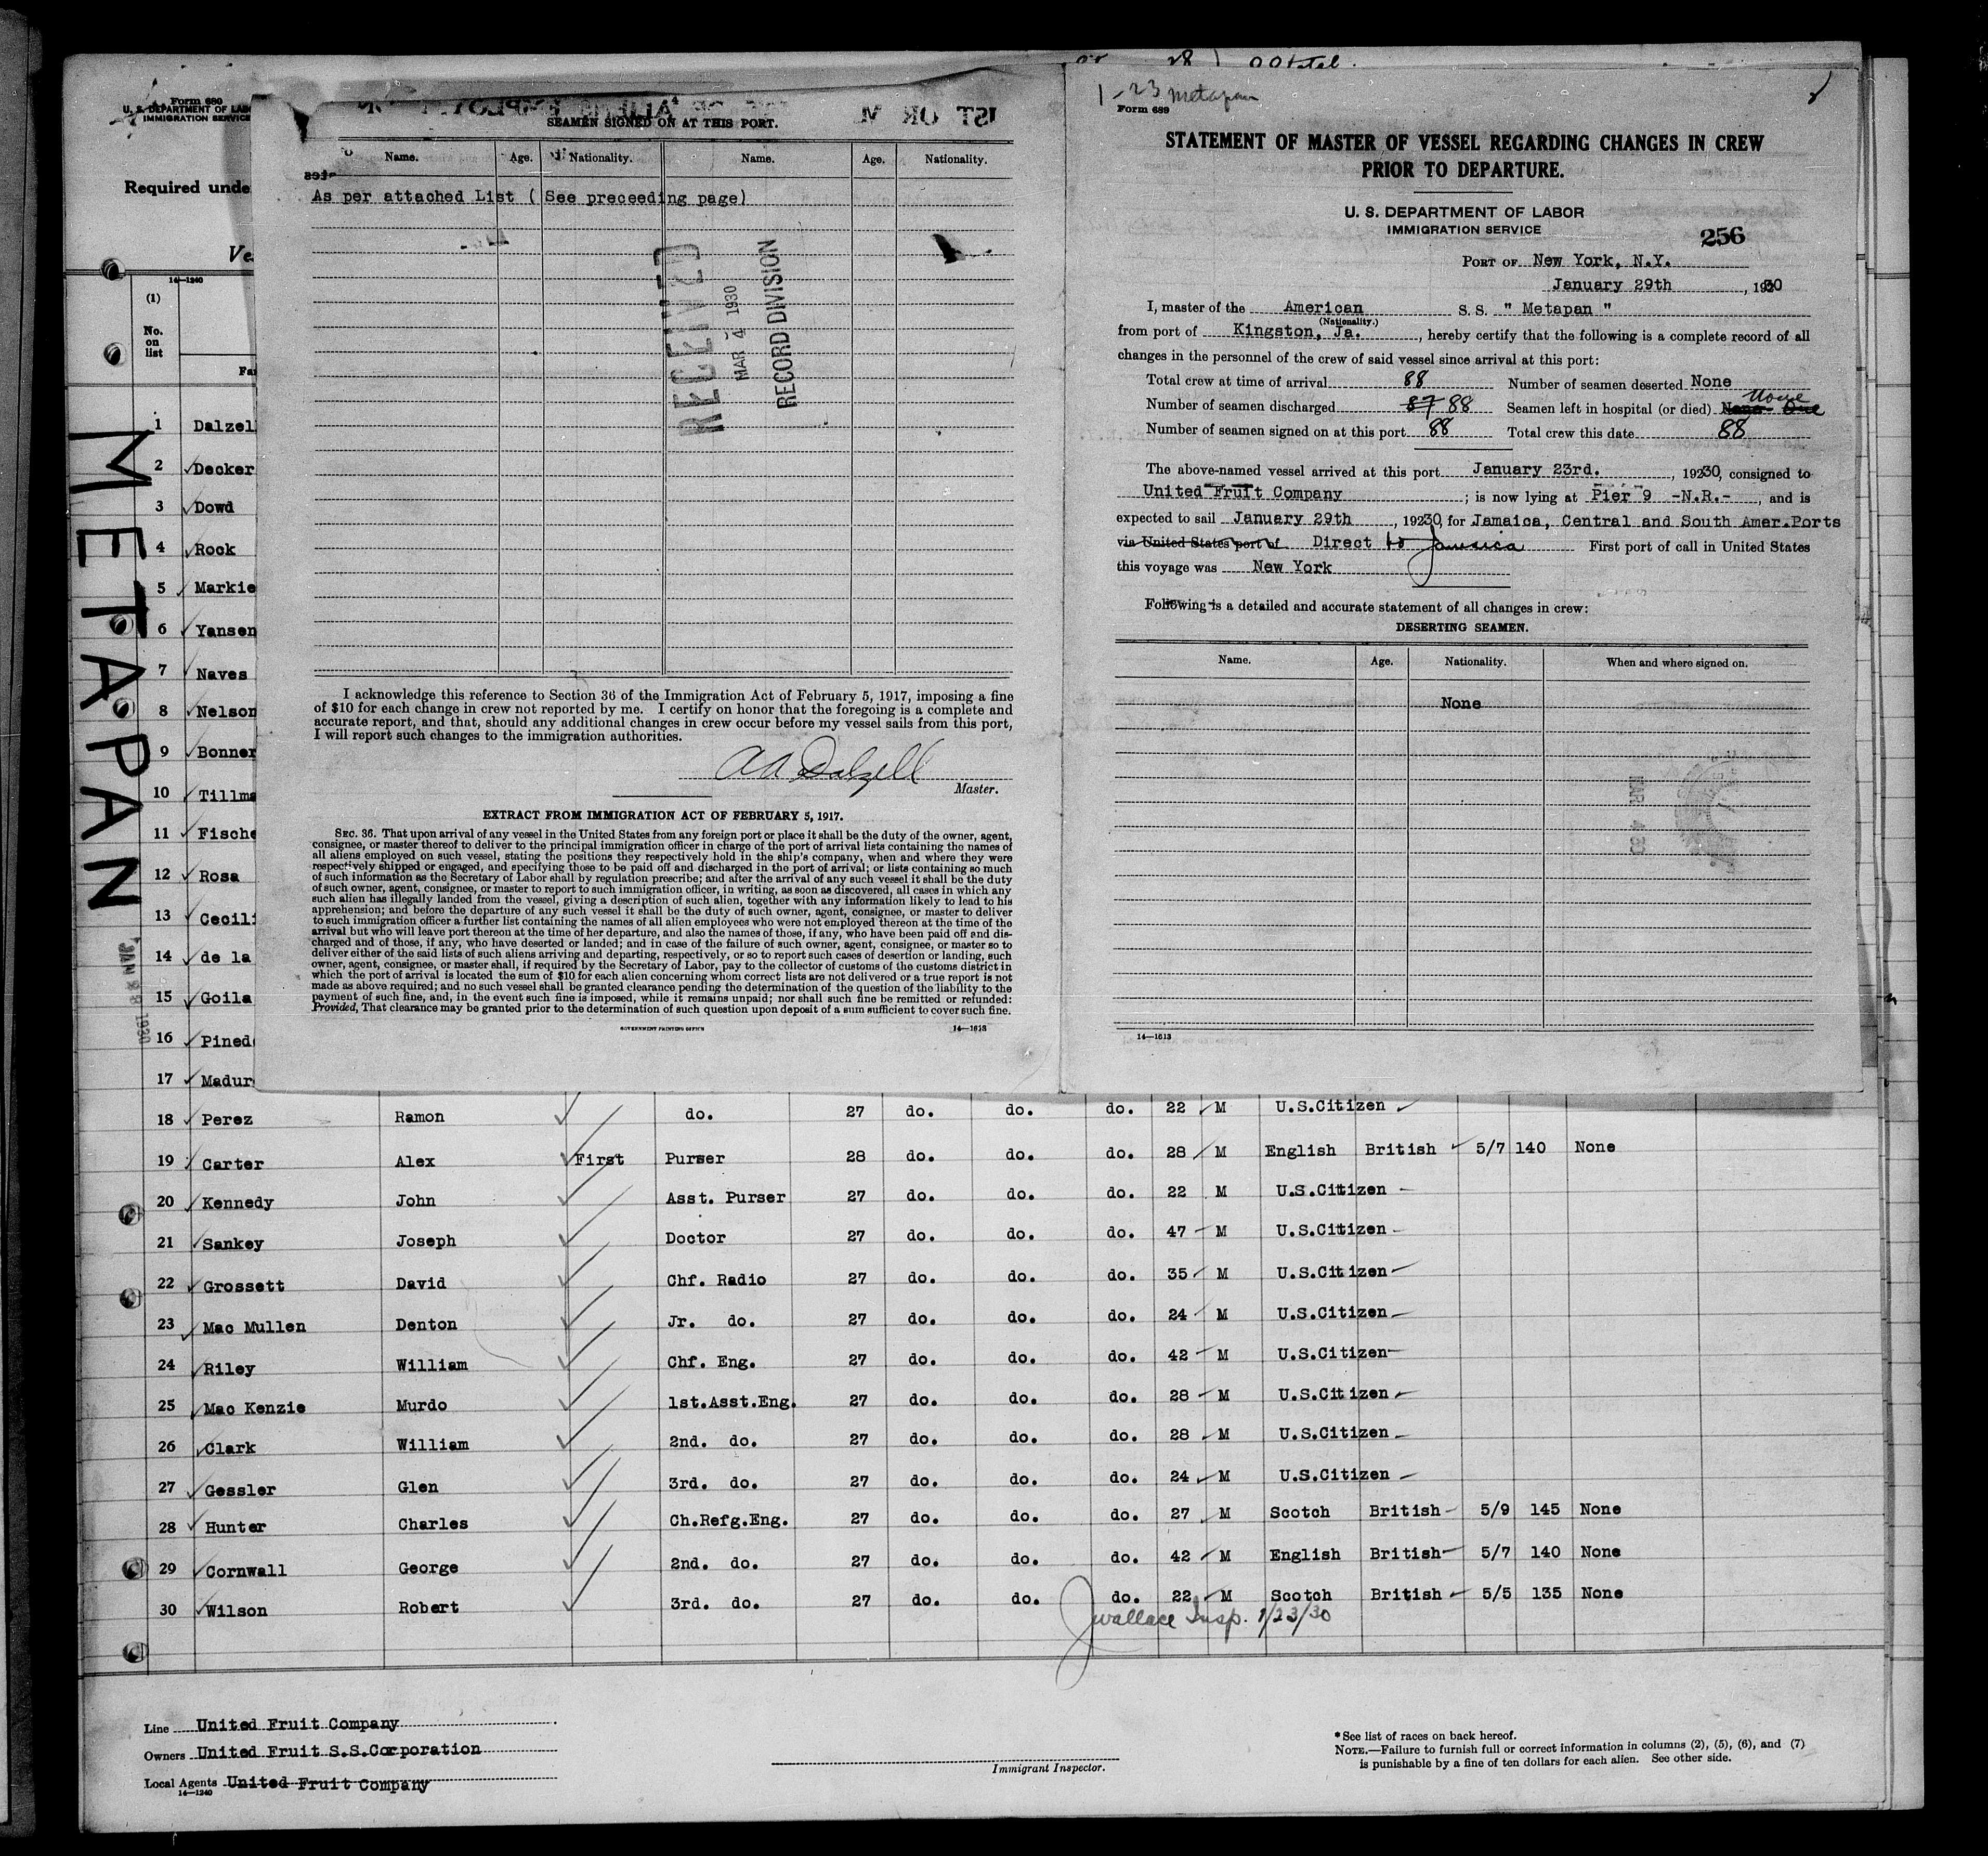 Form 680
U. S. DEPARTMENT OF LAB
IMMIGRATION SERVICE
Required unde
Ve
14—1240
(1)
No.
on
list
Fa
1 Dalzel
2 Decker
3 Dowd
4 Rock
5 Markie
6 Yansen
7 Naves
8 Nelson
9 Bonner
10 Tillma
11 Fische
12 Rosa
13 Cecili
14 de la
15 Goila
16 Pined
17 Madur
METAPAN
JAN 1930
SEAMEN SIGNED ON AT THIS PORT.
Name. Age. Nationality. Name. Age. Nationality.
As per attached List ( See preceeding page)
RECEIVED
MAR 4 1930
RECORD DIVISION
I acknowledge this reference to Section 36 of the Immigration Act of February 5, 1917, imposing a fine
of $10 for each change in crew not reported by me. I certify on honor that the foregoing is a complete and
accurate report, and that, should any additional changes in crew occur before my vessel sails from this port,
I will report such changes to the immigration authorities.
AA Dalzell
Master.
EXTRACT FROM IMMIGRATION ACT OF FEBRUARY 5, 1917.
SEC. 36. That upon arrival of any vessel in the United States from any foreign port or place it shall be the duty of the owner, agent,
consignee, or master thereof to deliver to the principal immigration officer in charge of the port of arrival lists containing the names of
all aliens employed on such vessel, stating the positions they respectively hold in the ship's company, when and where they were
respectively shipped or engaged, and specifying those to be paid off and discharged in the port of arrival; or lists containing so much
of such information as the Secretary of Labor shall by regulation prescribe; and after the arrival of any such vessel it shall be the duty
of such owner, agent, consignee, or master to report to such immigration officer, in writing, as soon as discovered, all cases in which any
such alien has illegally landed from the vessel, giving a description of such alien, together with any information likely to lead to his
apprehension; and before the departure of any such vessel it shall be the duty of such owner, agent, consignee, or master to deliver
to such immigration officer a further list containing the names of all alien employees who were not employed thereon at the time of the
arrival but who will leave port thereon at the time of her departure, and also the names of those, if any, who have been paid off and dis-
charged and of those, if any, who have deserted or landed; and in case of the failure of such owner, agent, consignee, or master so to
deliver either of the said lists of such aliens arriving and departing, respectively, or so to report such cases of desertion or landing, such
owner, agent, consignee, or master shall, if required by the Secretary of Labor, pay to the collector of customs of the customs district in
which the port of arrival is located the sum of $10 for each alien concerning whom correct lists are not delivered or a true report is not
made as above required; and no such vessel shall be granted clearance pending the determination of the question of the liability to the
payment of such fine, and, in the event such fine is imposed, while it remains unpaid; nor shall such fine be remitted or refunded:
Provided, That clearance may be granted prior to the determination of such question upon deposit of a sum sufficient to cover such fine.
GOVERNMENT PRINTING OFFICE 14—1613
1-23 Metapan
Form 689
STATEMENT OF MASTER OF VESSEL REGARDING CHANGES IN CREW
PRIOR TO DEPARTURE.
U. S. DEPARTMENT OF LABOR
IMMIGRATION SERVICE
256
PORT OF New York, N.Y.
January 29th, 1930
I, master of the American S. S. " Metapan "
(Nationality.)
from port of Kingston, Ja., hereby certify that the following is a complete record of all
changes in the personnel of the crew of said vessel since arrival at this port:
Total crew at time of arrival 88 Number of seamen deserted None
Number of seamen discharged 87 88 Seamen left in hospital (or died) None One None
Number of seamen signed on at this port 88 Total crew this date 88
The above-named vessel arrived at this port January 23rd., 19230, consigned to
United Fruit Company; is now lying at Pier 9 -N.R.-, and is
expected to sail January 29th, 19230, for Jamaica, Central and South Amer.Ports
via United States port of Direct to Jamaica First port of call in United States
this voyage was New York
Following is a detailed and accurate statement of all changes in crew:
DESERTING SEAMEN.
Name. Age. Nationality. When and where signed on.
None
MAR 4 30
14—1613
18 Perez Ramon do. 27 do. do. do. 22 M U.S.Citizen
19 Carter Alex First Purser 28 do. do. do. 28 M English British 5/7 140 None
20 Kennedy John Asst. Purser 27 do. do. do. 22 M U.S.Citizen
21 Sankey Joseph Doctor 27 do. do. do. 47 M U.S.Citizen
22 Grossett David Chf. Radio 27 do. do. do. 35 M U.S.Citizen
23 Mac Mullen Denton Jr. do. 27 do. do. do. 24 M U.S.Citizen
24 Riley William Chf. Eng. 27 do. do. do. 42 M U.S.Citizen
25 Mac Kenzie Murdo 1st.Asst.Eng. 27 do. do. do. 28 M U.S.Citizen
26 Clark William 2nd. do. 27 do. do. do. 28 M U.S.Citizen
27 Gessler Glen 3rd. do. 27 do. do. do. 24 M U.S.Citizen
28 Hunter Charles Ch.Refg.Eng. 27 do. do. do. 27 M Scotch British 5/9 145 None
29 Cornwall George 2nd. do. 27 do. do. do. 42 M English British 5/7 140 None
30 Wilson Robert 3rd. do. 27 do. do. do. 22 M Scotch British 5/5 135 None
J Wallace Insp. 1/23/30
Line United Fruit Company
Owners United Fruit S.S.Corporation
Local Agents United Fruit Company
14—1240
Immigrant Inspector.
* See list of races on back hereof.
NOTE.—Failure to furnish full or correct information in columns (2), (5), (6), and (7)
is punishable by a fine of ten dollars for each alien. See other side.